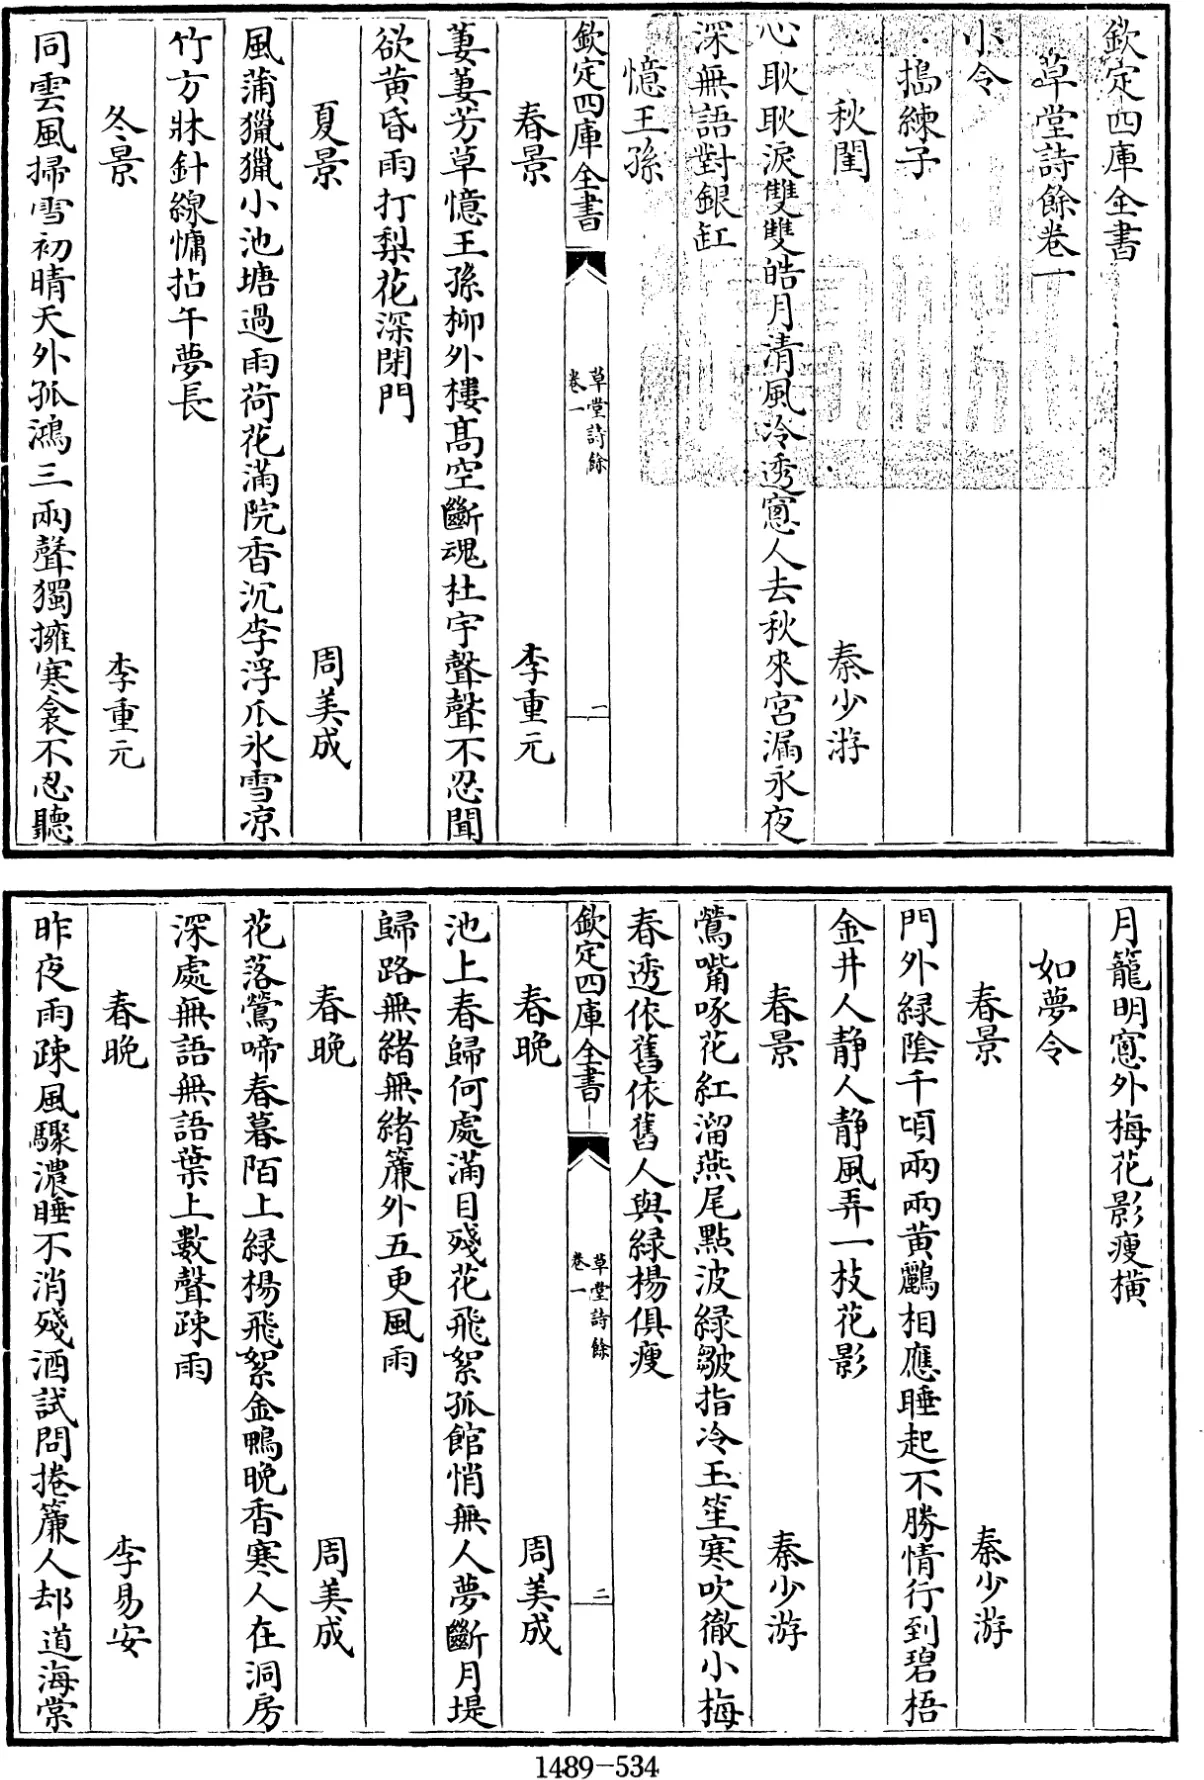 欽定四庫全書
草堂詩餘卷一
小令
搗練子
秋閨　秦少游
心耿耿淚雙雙皓月清風冷透窻人去秋來宮漏永夜
深無語對銀缸
憶王孫
欽定四庫全書　草堂詩餘卷一　一
春景　李重元
萋萋芳草憶王孫柳外樓髙空斷魂杜宇聲聲不忍聞
欲黄昏雨打梨花深閉門
夏景　周美成
風蒲獵獵小池塘過雨荷花滿院香沉李浮爪氷雪凉
竹方牀針線慵拈午夢長
冬景　李重元
同雲風掃雪初晴天外孤鴻三兩聲獨擁寒衾不忍聽
月籠明窻外梅花影瘦横
如夢令
春景　秦少游
門外緑陰千頃兩兩黄鸝相應睡起不勝情行到碧梧
金井人静人静風弄一枝花影
春景　秦少游
鶯嘴啄花紅溜燕尾點波緑皺指冷玉笙寒吹徹小梅
春透依舊依舊人與緑楊俱瘦
欽定四庫全書　草堂詩餘卷一　二
春晩　周美成
池上春歸何處滿目殘花飛絮孤館悄無人夢斷月堤
歸路無緒無緒簾外五更風雨
春晩　周美成
花落鶯啼春暮陌上緑楊飛絮金鴨晩香寒人在洞房
深處無語無語葉上數聲疎雨
春晩　李易安
昨夜雨疎風驟濃睡不消殘酒試問捲簾人却道海棠
1489-534